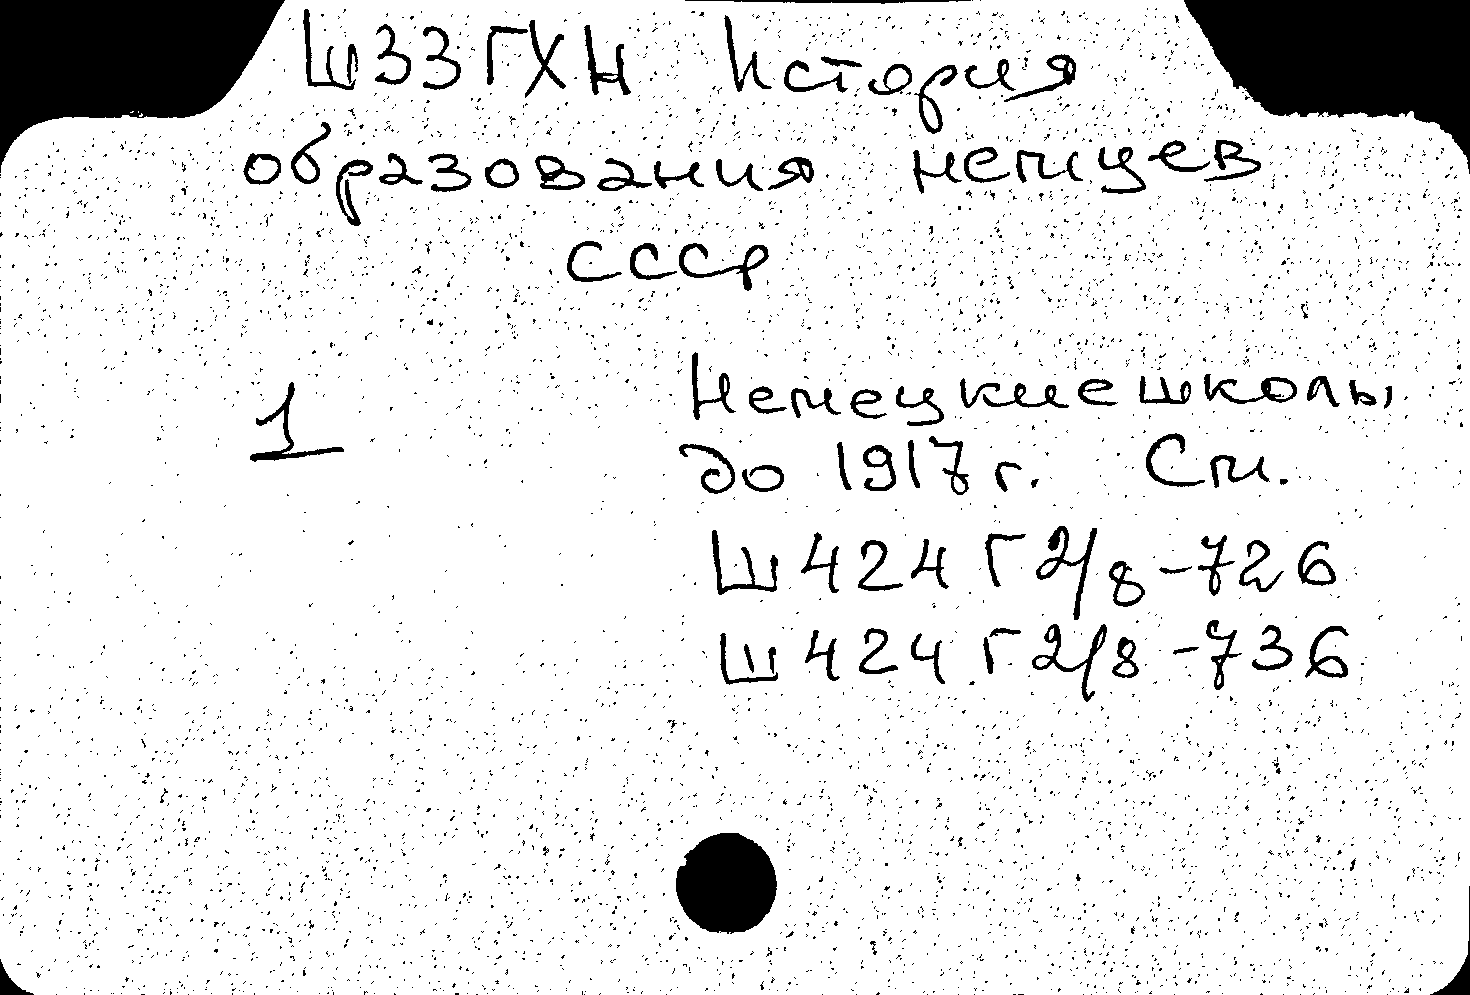 Ш33ГХН История
образования немцев
СССР
1 Немецкие школы
до 1917 г. См.
Ш424Г2/8-726
Ш424Г2/8-736